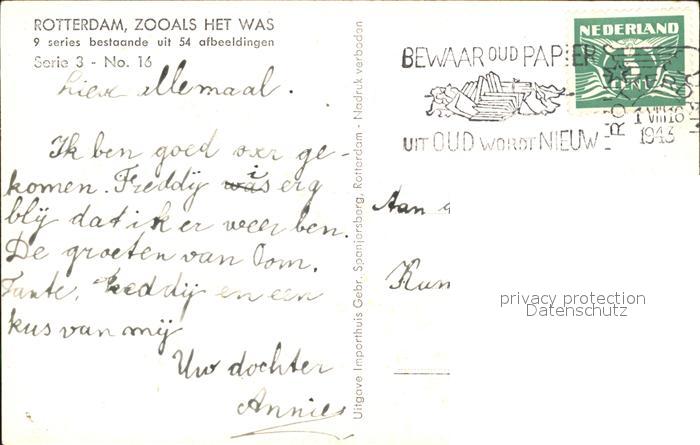 ROTTERDAM, ZOOALS HET WAS
9 series bestaande uit 54 afbeeldingen
Serie 3 - No. 16
Liexe allemaal.
Ik ben goed oxer ge-
komen. Freddij is erg
blij dat ik er weer ben.
De groeten van Oom,
Tante, Freddij en een
kus van mij
Uw dochter
Annies
Uitgave Importhuis Gebr. Spanjersberg, Rotterdam - Nadruk verboden
BEWAAR OUD PAPIER
UIT OUD WORDT NIEUW
NEDERLAND
5
CENT
ROTTERDAM
1 VIII 16
1943
Aan
privacy protection
Datenschutz